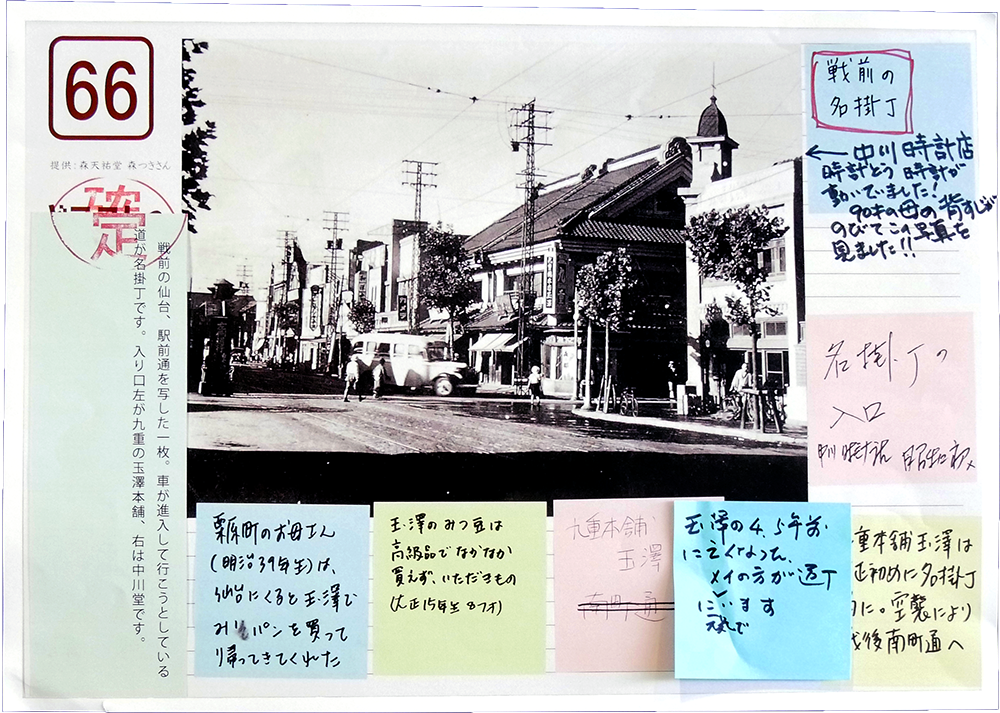 66
提供：森天祐堂 森つきさん
確定
戦前の仙台、駅前通を写した一枚。車が進入して行こうとしている
道が名掛丁です。入り口左が九重の玉澤本舗、右は中川堂です。
戦前の
名掛丁
← 中川時計店
時計どう 時計が
動いていました!
90才の母の背すじが
のびてこの写真を
見ました!!
名掛丁の
入口
栗原町のお母さん
(明治39年生)は、
仙台にくると玉澤で
パンを買って
帰ってきてくれた
玉澤のみつ豆は
高級品でなかなか
買えず、いただきもの
(大正15年生 87才)
九重本舗
玉澤
南町通
玉澤の4.5年前
に亡くなった、
メイの方が
います
元気で
重本舗玉澤は
正初めに名掛丁
に。空襲により
戦後南町通へ